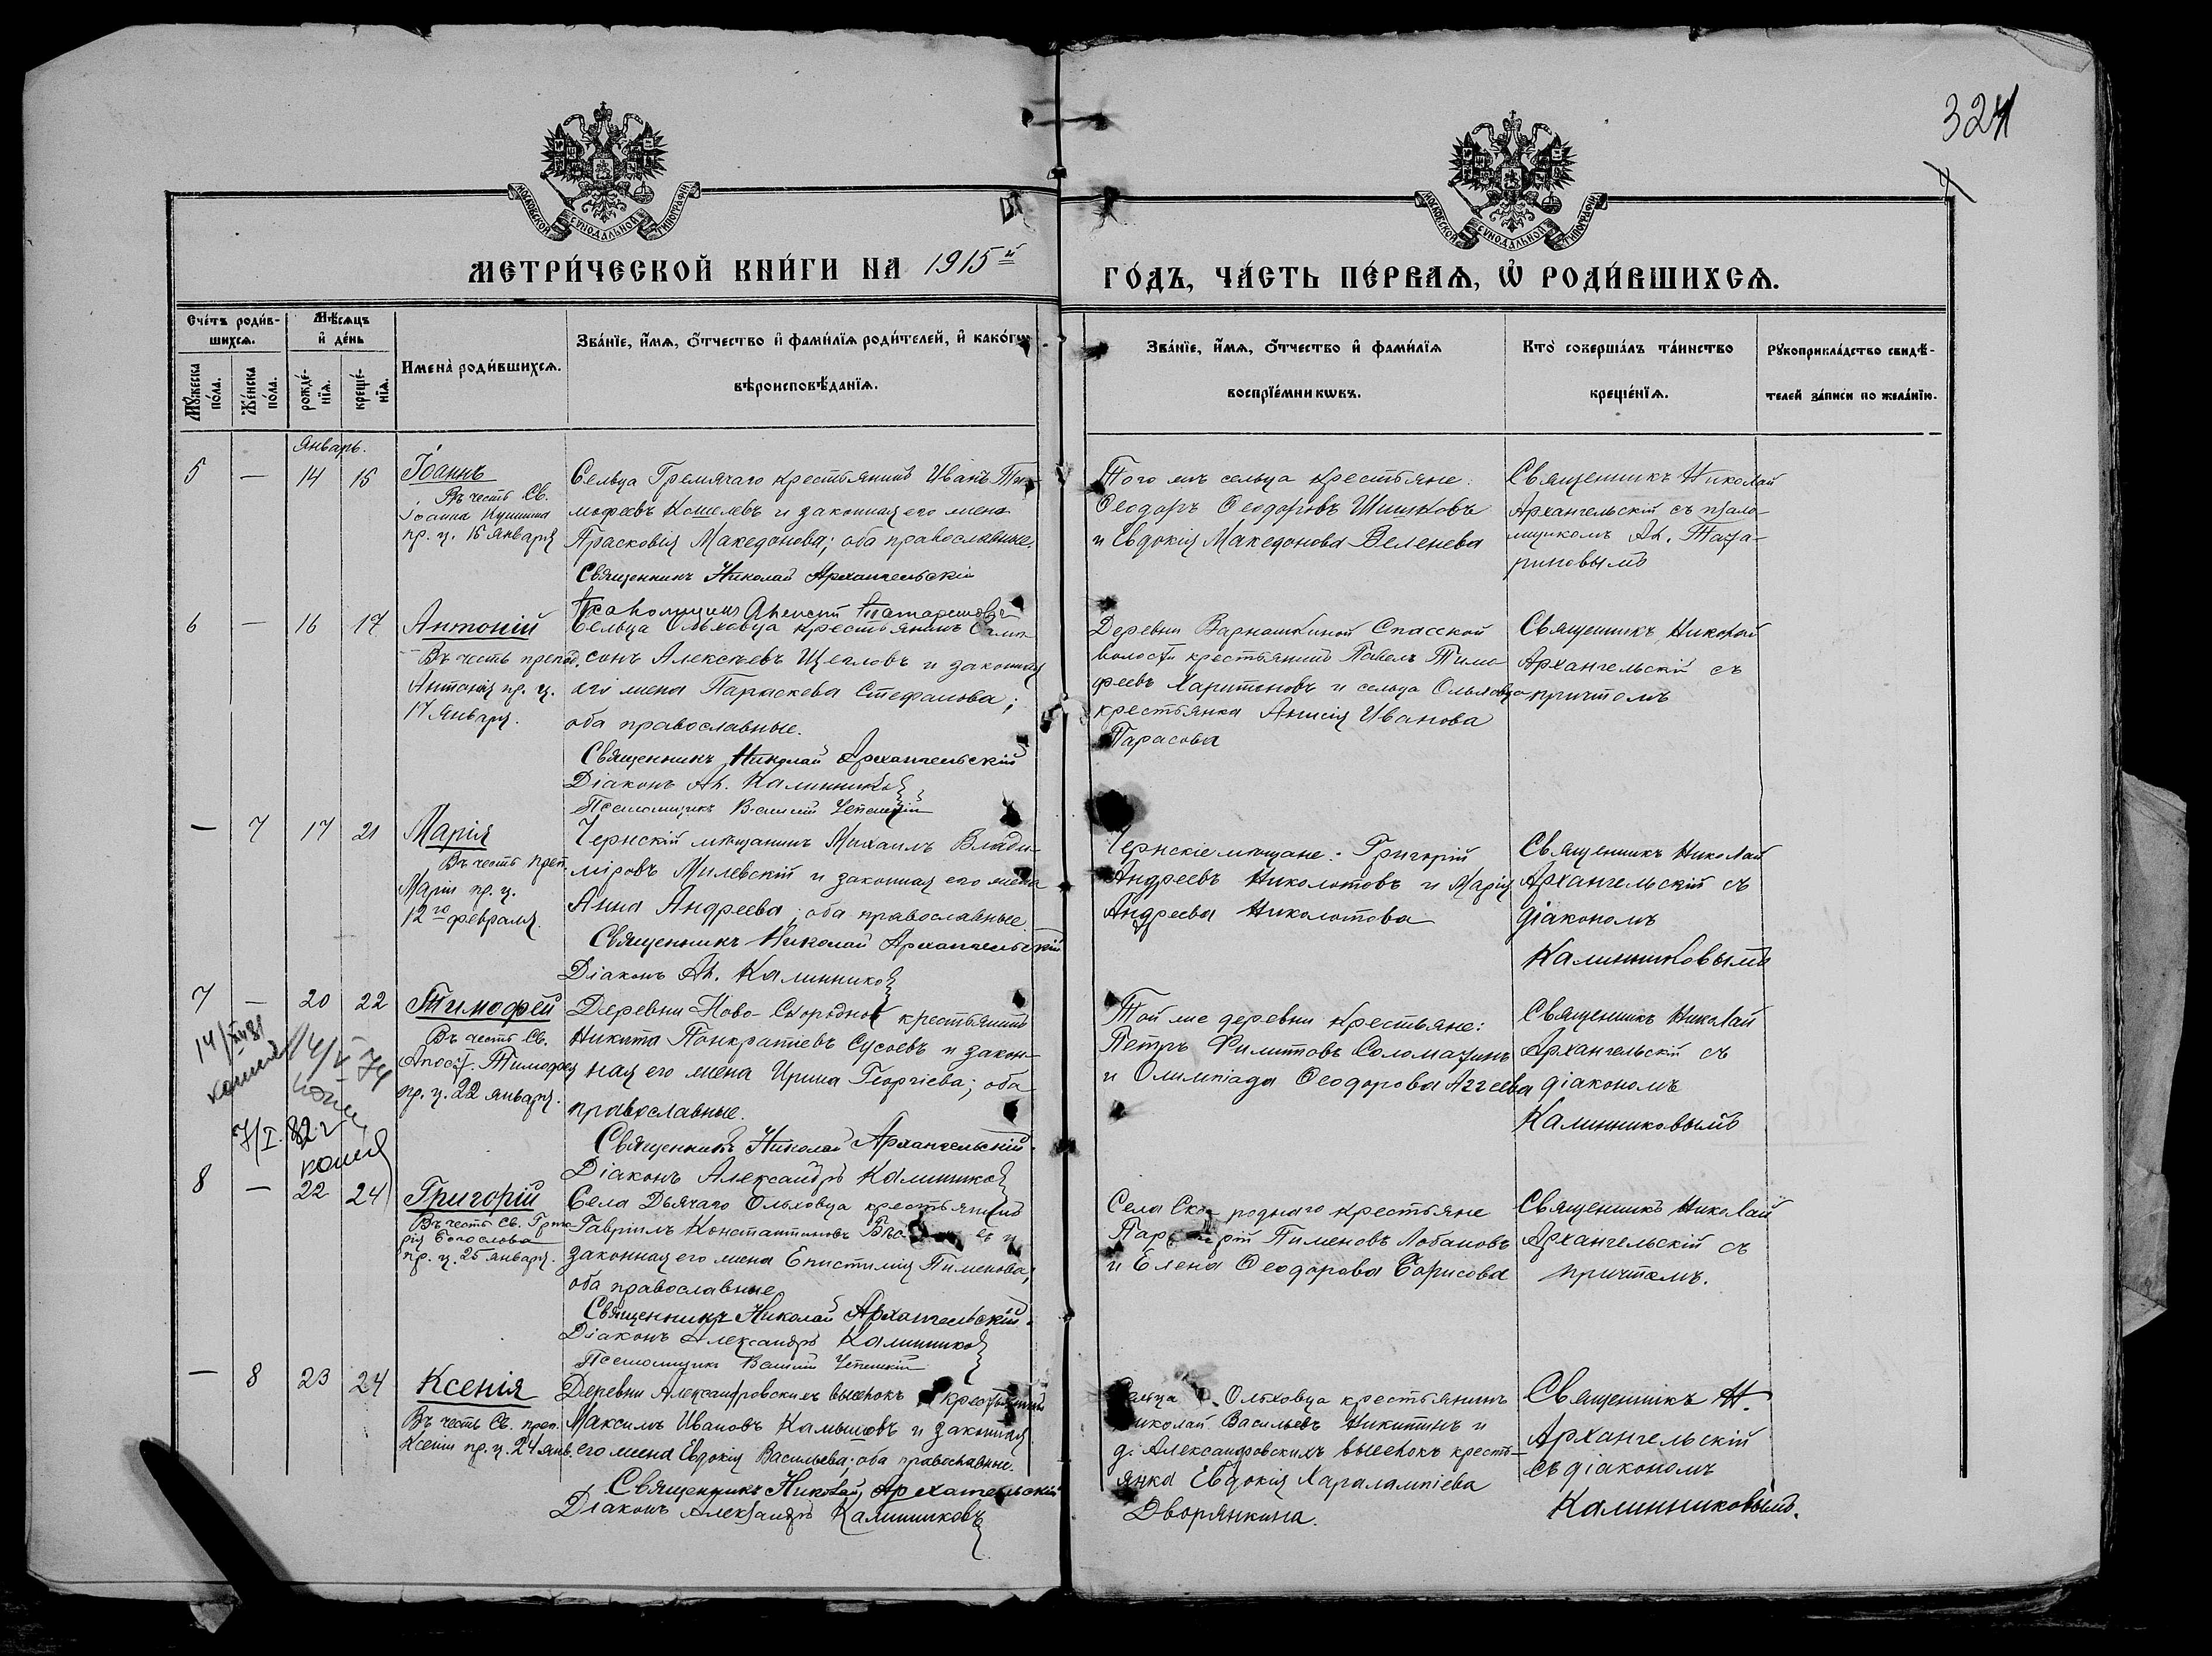 324
МОСКОВСКОЙ СУНОДАЛЬНОЙ ТИПОГРАФІИ
МОСКОВСКОЙ СУНОДАЛЬНОЙ ТИПОГРАФІИ
МЕТРИ́ЧЕСКОЙ КНИ́ГИ НА 1915й
ГО́ДЪ, ЧА́СТЬ ПЕ́РВАѦ, Ѽ РОДИ́ВШИХСѦ.
Сче́тъ роди́в-
шихсѧ.
Мѣ́сѧцъ
и҆ де́нь
Мꙋ́жеска
по́ла.
Же́нска
по́ла.
рожде́-
нїѧ.
креще́-
нїѧ.
Имена̀ роди́вшихсѧ.
Зва́нїе, и҆́мѧ, ѻ҆́тчество и҆ фами́лїѧ роди́телей, и҆ како́гѡ
вѣроисповѣ́данїѧ.
Зва́нїе, и҆́мѧ, ѻ҆́тчество и҆ фами́лїѧ
воспрїе́мникѡвъ.
Кто̀ соверша́лъ та́инство
креще́нїѧ.
Рꙋкоприкла́дство свидѣ́-
телей за́писи по жела́нїю.
Январь.
5 — 14 15
Іоаннъ
Въ честь Св.
Іоанна Кущника
пр. ц. 15 января
Сельца Гремячаго крестьянинъ Иванъ Ти-
мофеевъ Кошелевъ и законная его жена
Прасковія Македонова; оба православные.
Священникъ Николай Архангельскій
Псаломщикъ Алексій Татариновъ
Того же сельца крестьяне:
Ѳеодоръ Ѳеодоровъ Шишковъ
и Евдокія Македонова Веленева
Священникъ Николай
Архангельскій съ псало-
мщикомъ Ал. Тата-
риновымъ
6 — 16 17
Антоній
Въ честь препод.
Антонія пр. ц.
17 января.
Сельца Ольховца крестьянинъ Сам-
сонъ Алексѣевъ Щегловъ и законная
его жена Параскева Стефанова;
оба православные.
Священникъ Николай Архангельскій
Діаконъ Ал. Калинниковъ
Псаломщикъ Василій
Деревни Варнашкиной Спасской
волости крестьянинъ Павелъ Тимо
феевъ Харитоновъ и сельца Ольховца
крестьянка Анисія Иванова
Тарасова
Священникъ Николай
Архангельскій съ
причтомъ
— 7 17 21
Марія
Въ честь преп.
Маріи пр. ц.
12го февраля.
Чернскій мѣщанинъ Михаилъ Влади-
міровъ Милевскій и законная его жена
Анна Андреева; оба православные.
Священникъ Николай Архангельскій
Діаконъ Ал. Калинниковъ
Чернскіе мѣщане: Григорій
Андреевъ Николотовъ и Марія
Андреева Николотова
Священникъ Николай
Архангельскій съ
діакономъ
Калинниковымъ
7 — 20 22
14/XII 81
копия
7/I. 82 г
копия
Тимофей
Въ честь Св.
Апост. Тимофея
пр. ц. 22 января.
Деревни Ново-Скородной крестьянинъ
Никита Понкратіевъ Сусоевъ и закон-
ная его жена Ирина Георгіева; оба
православные.
Священникъ Николай Архангельскій.
Діаконъ Александръ Калинниковъ
Той же деревни крестьяне:
Петръ Филиповъ Соломатинъ
и Олимпіада Ѳеодорова Аггеева
Священникъ Николай
Архангельскій съ
діакономъ
Калинниковымъ
8 — 22 24
Григорій
Въ честь Св. Григо
рія Богослова
пр. ц. 25 января.
Села Дьячаго Ольховца крестьянинъ
Гавріилъ Константиновъ и
законная его жена Епистимія Пименова;
оба православные
Священникъ Николай Архангельскій.
Діаконъ Александръ Калинниковъ
Псаломщикъ Василій
Села Скороднаго крестьяне
Пименовъ Лобановъ
и Елена Ѳеодорова Борисова
Священникъ Николай
Архангельскій съ
причтомъ.
— 8 23 24
Ксенія
Въ честь Св. преп.
Ксеніи пр. ц. 24 янв.
Деревни Александровскихъ выселокъ крестьянинъ
Максимъ Ивановъ Камышовъ и законная
его жена Евдокія Васильева; оба православные.
Священникъ Николай Архангельскій
Діаконъ Александръ Калинниковъ
Сельца Ольховца крестьянинъ
Николай Васильевъ Никитинъ и
д. Александровскихъ выселокъ кресть-
янка Евдокія Харалампіева
Дворянкина.
Священникъ Н.
Архангельскій
съ діакономъ
Калинниковымъ.